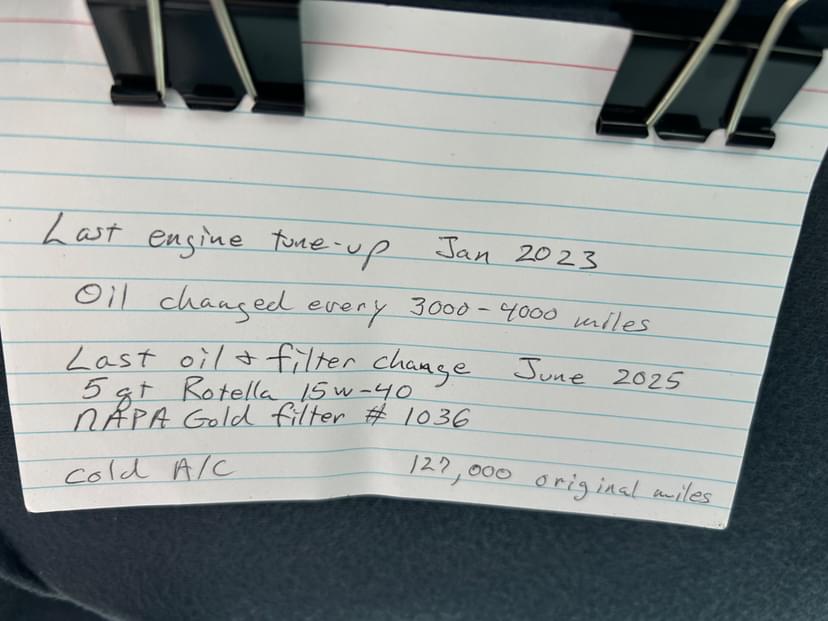 Last engine tune-up Jan 2023
Oil changed every 3000-4000 miles
Last oil & filter change June 2025
5 qt Rotella 15w-40
NAPA Gold filter # 1036
Cold A/C 127,000 original miles